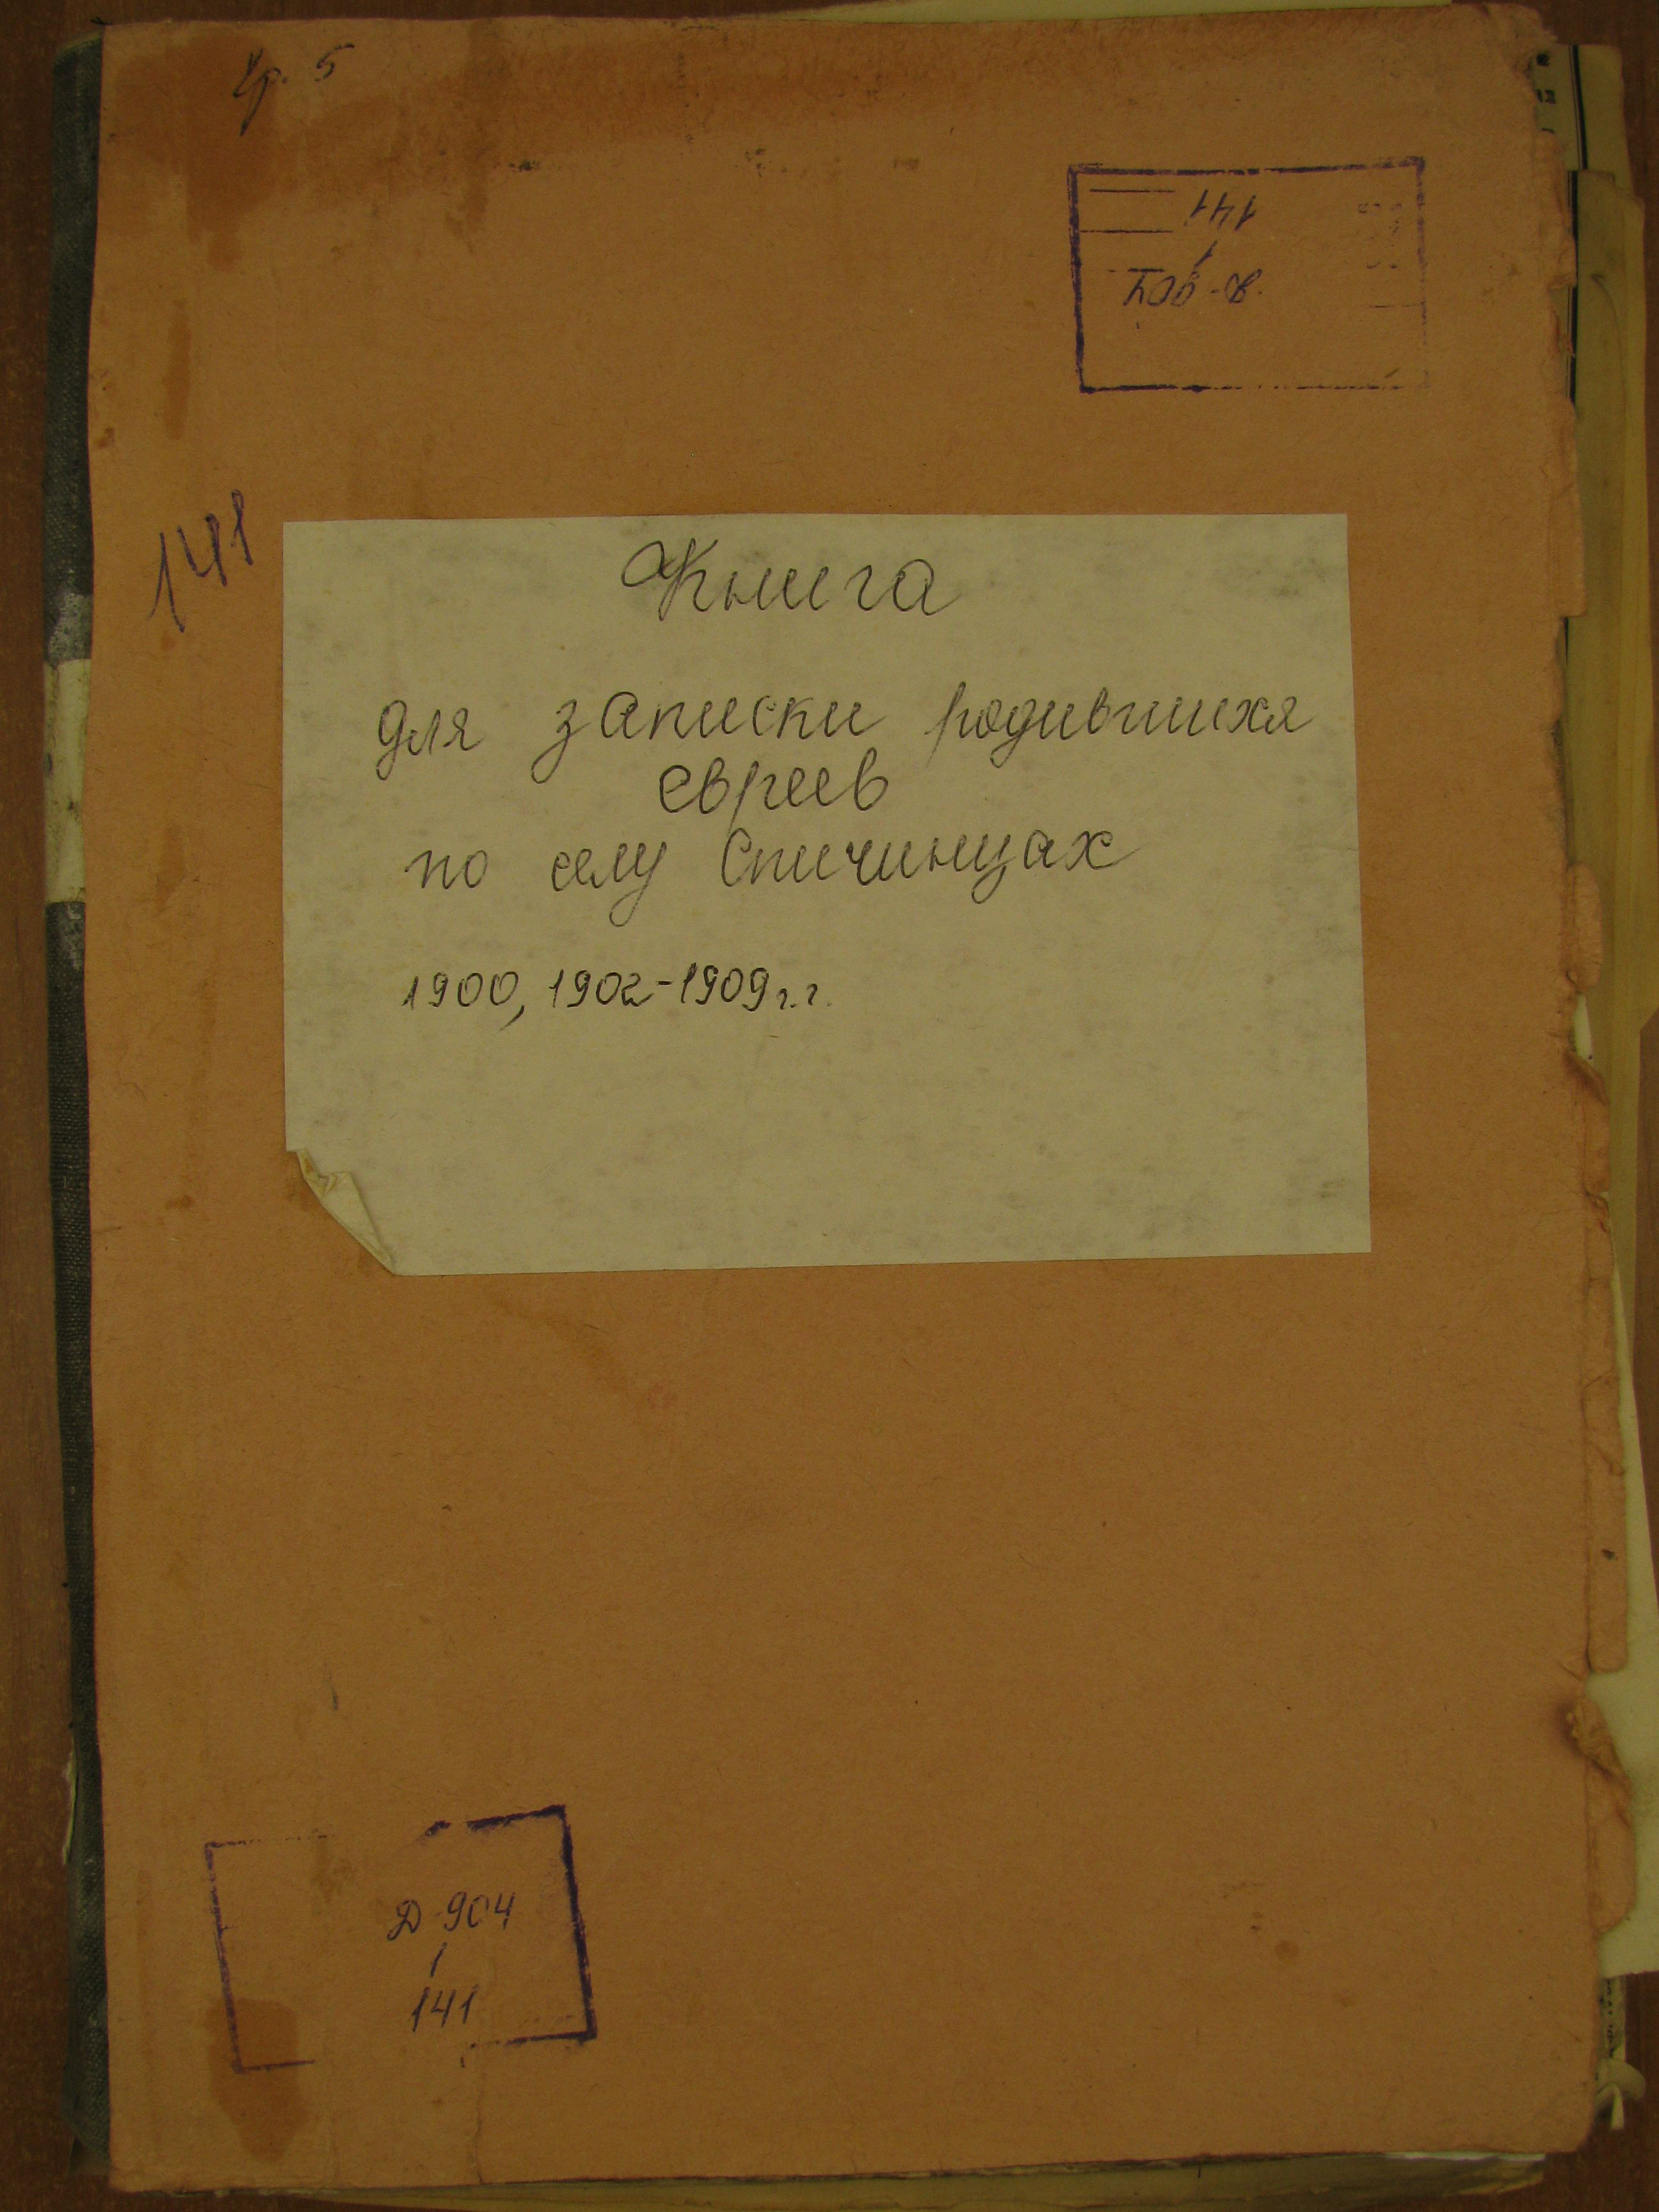 гр. 5
141
Д-904
141
Книга
для записки родившихя
евреев
по селу Спичинцах
1900, 1902-1909 г.г.
Д-904
141